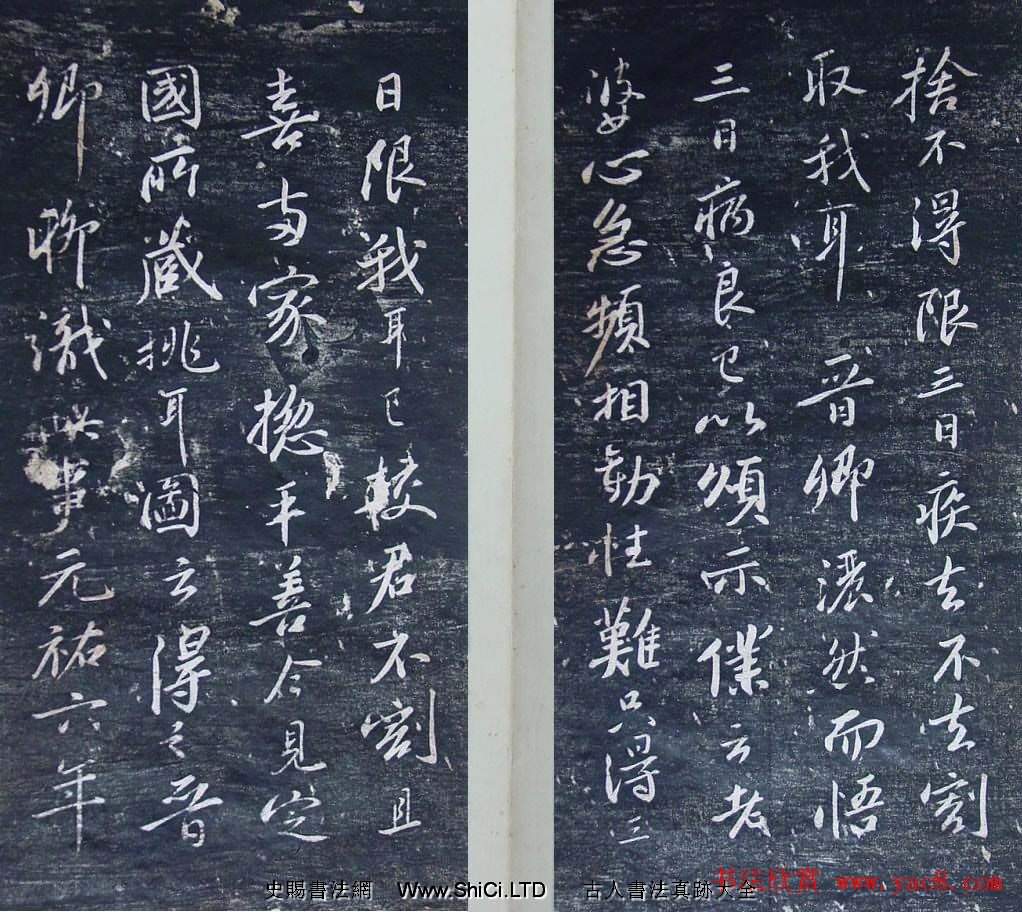 捨不得限三日疾去不去割
取我耳晉卿灑然而悟
三日病良已以頌示僕云老
婆心急頻相勸性難只得三
日限我耳已較君不割且
喜兩家揔平善今見定
國所藏挑耳圖云得之晉
卿聊識此事元祐六年
史賜書法網 Www.ShiCi.LTD 古人書法真跡大全
书法欣賞 www.yac8.com